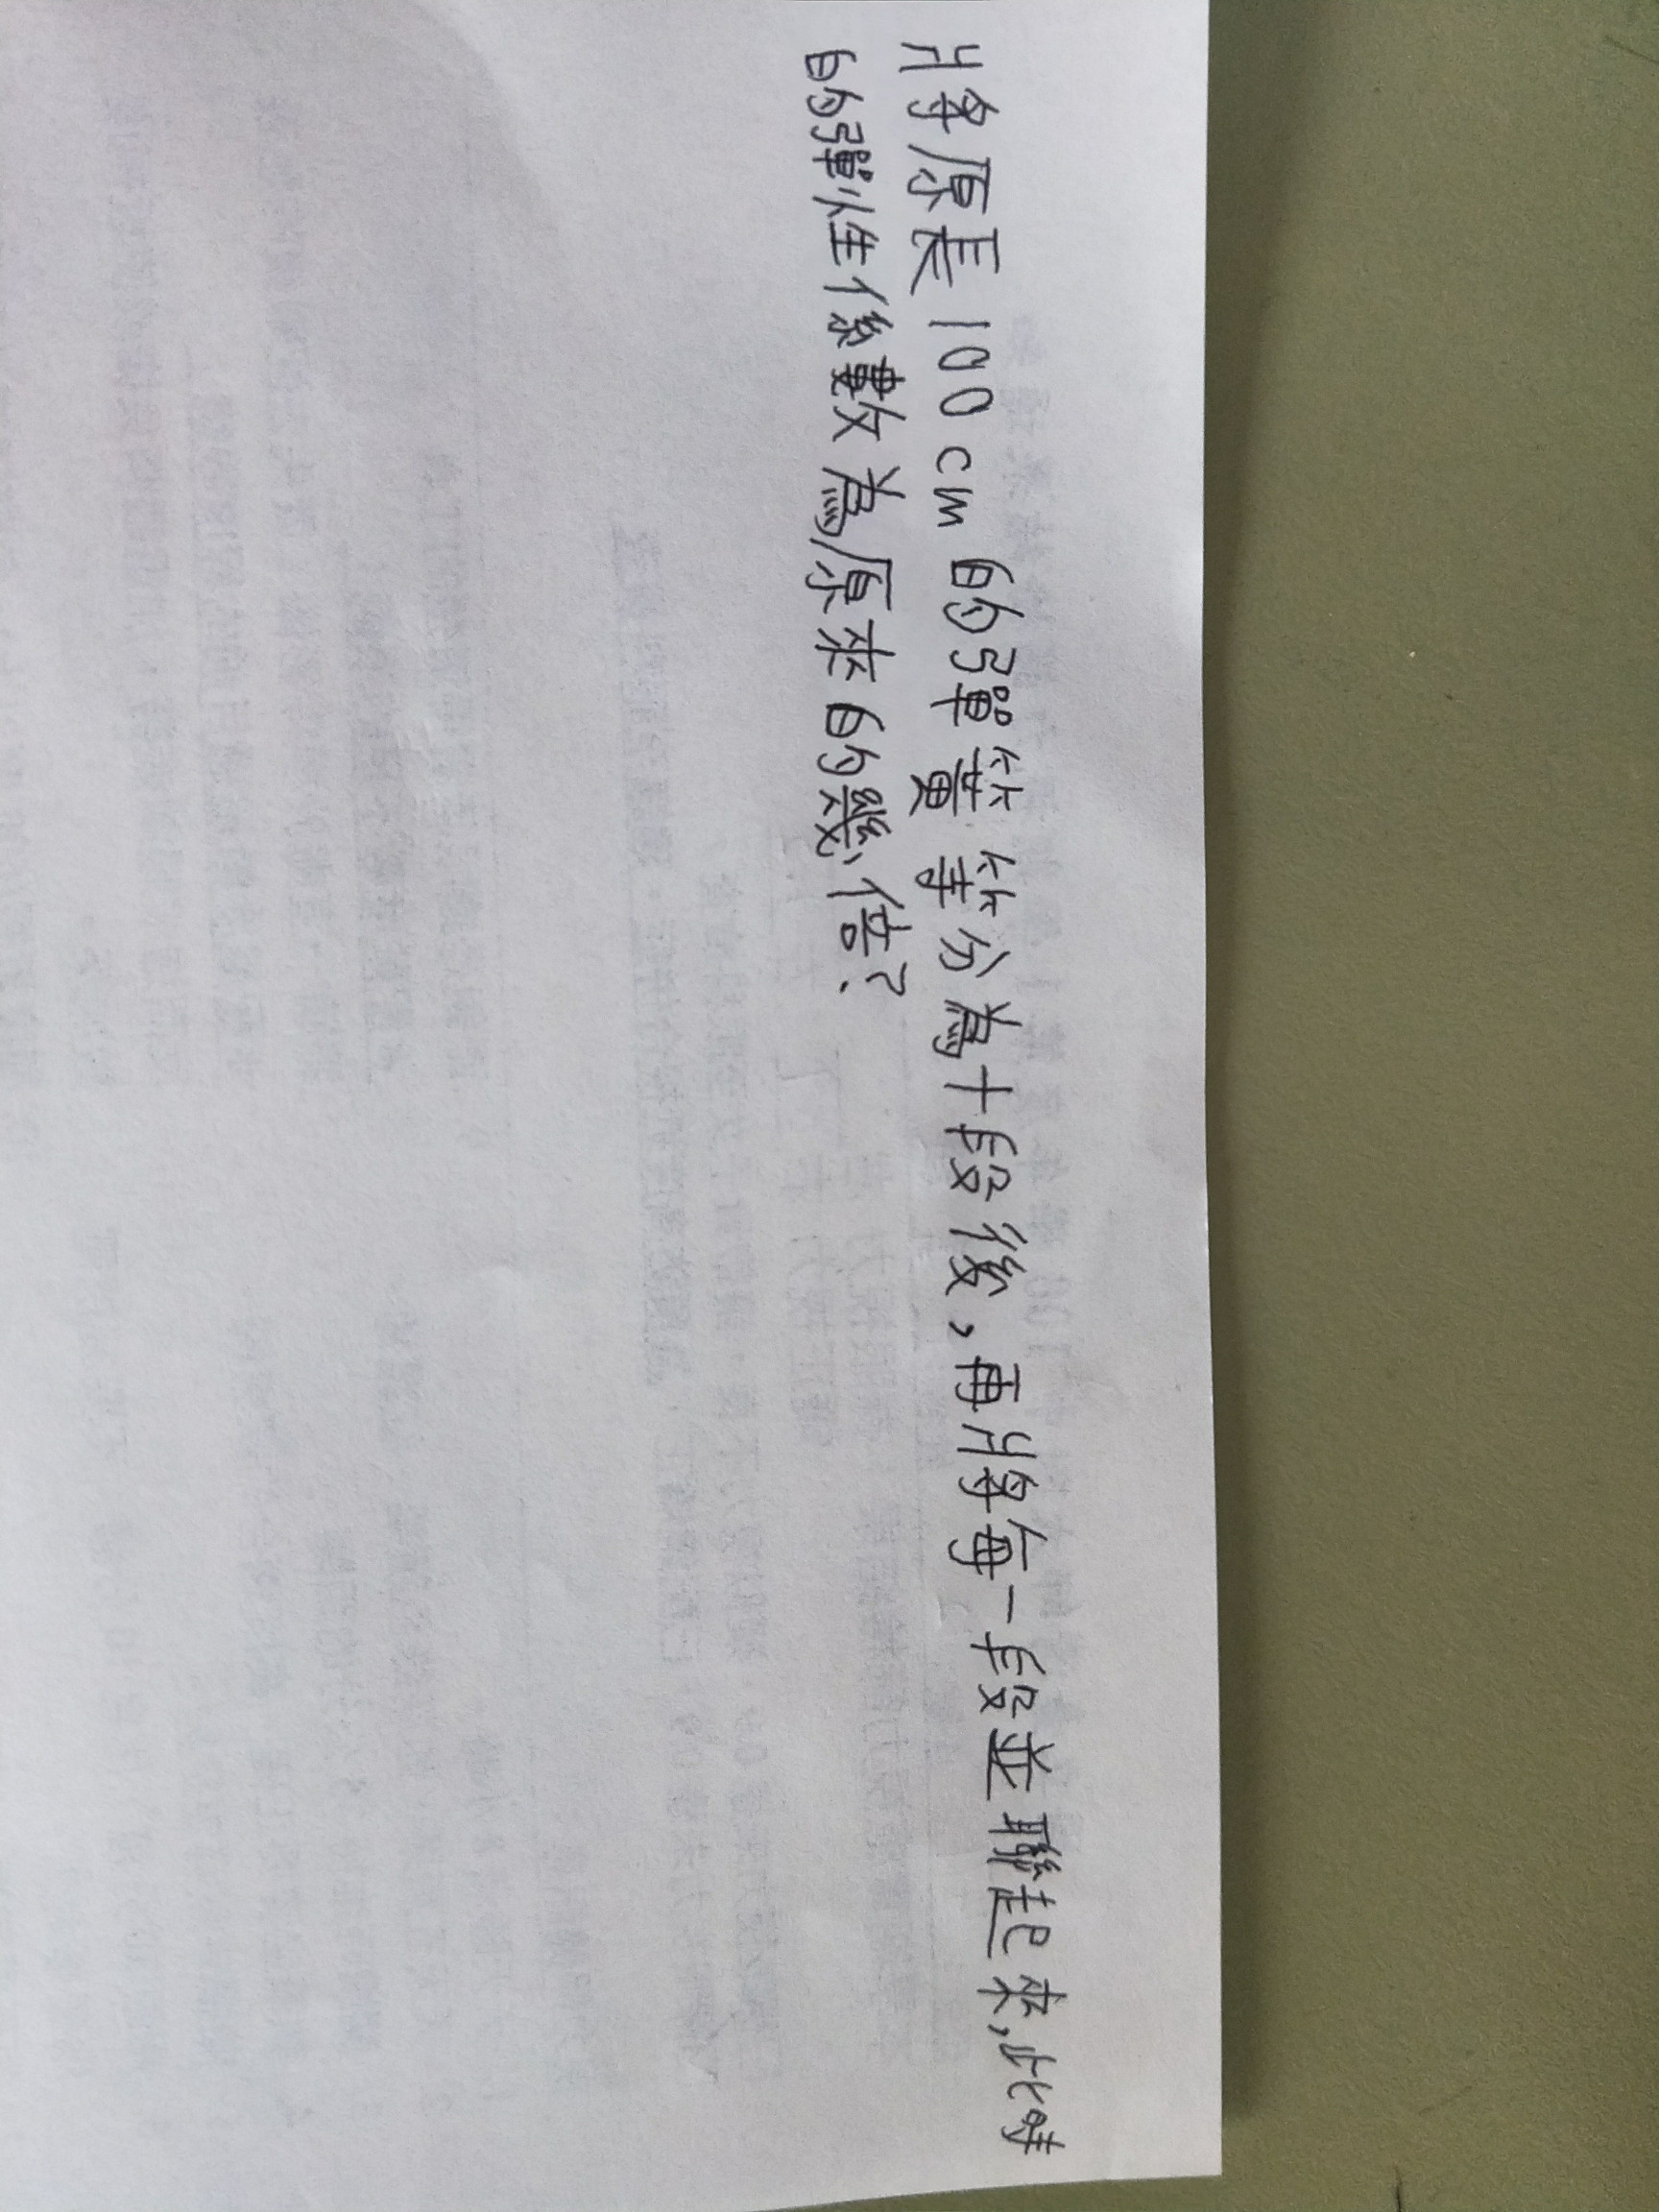 將原長100cm的彈簧等分為十段後,再將每一段並聯起來,此時
的彈性係數為原來的幾倍?